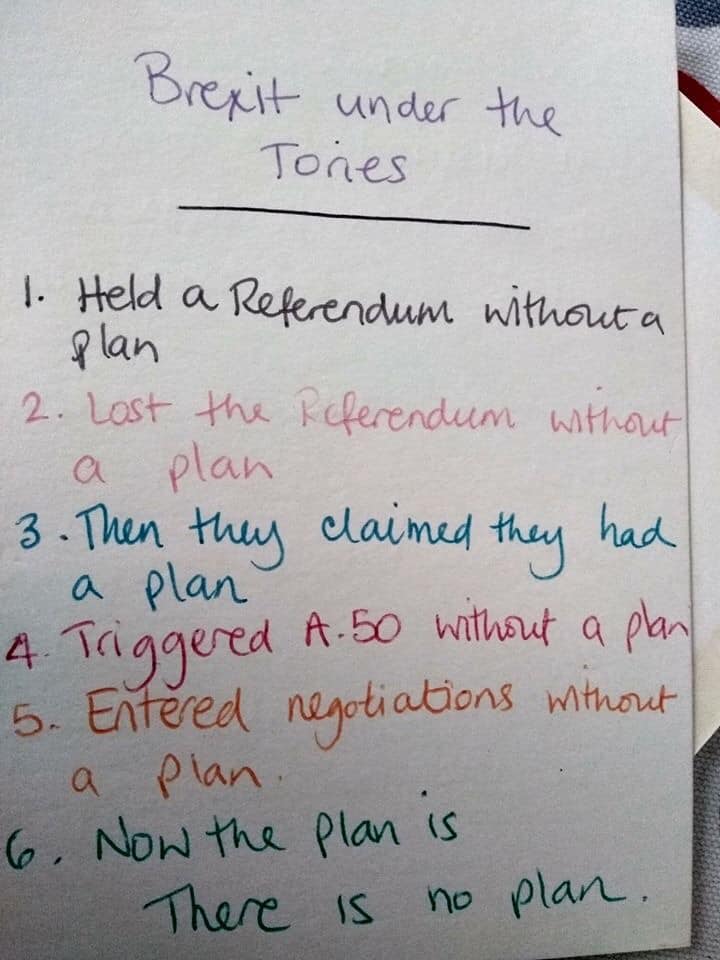 Brexit under the
Tories
1. Held a Referendum without a
plan
2. Lost the Referendum without
a plan
3. Then they claimed they had
a plan
4. Triggered A.50 without a plan
5. Entered negotiations without
a plan.
6. Now the plan is
There is no plan.